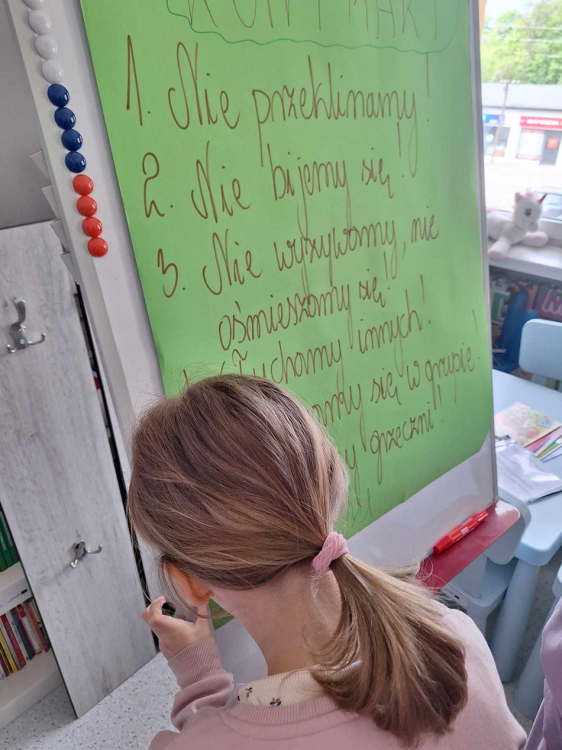 KONTRAKT
1. Nie przeklinamy!
2. Nie bijemy się!
3. Nie wyzywamy, nie
ośmieszamy się!
Słuchamy innych!
się w grupie!
grzeczni!